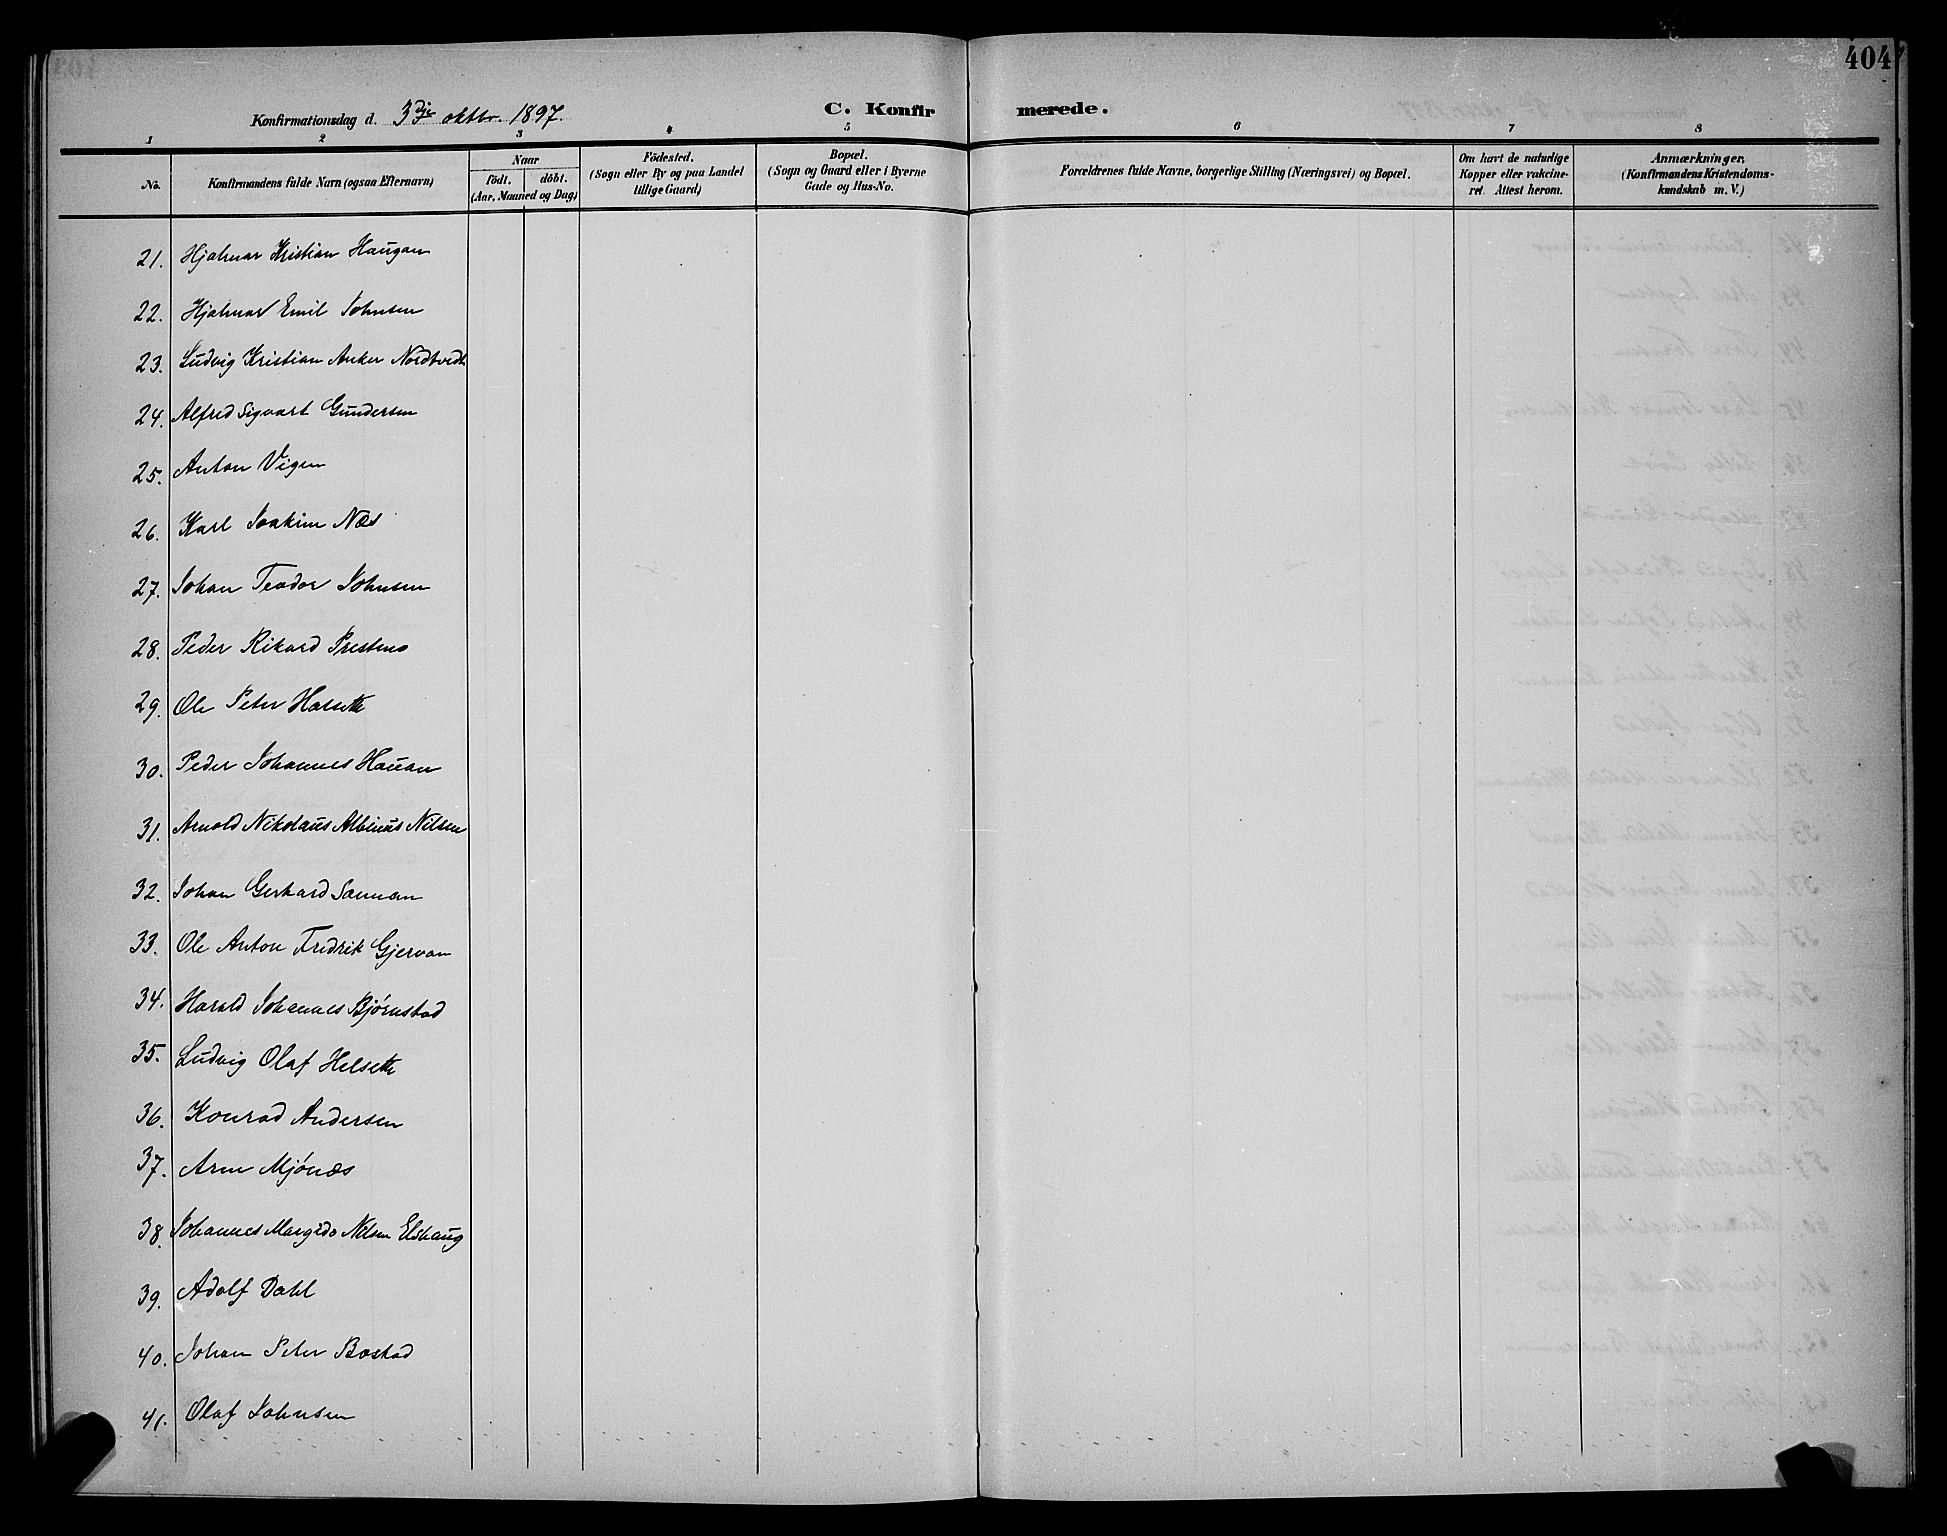 404
Konfirmationsdag d. 3dje oktbr. 1897. C. Konfirmerede.
1 2 3 4 5 6 7 8
No.
Konfirmandens fulde Navn (ogsaa Efternavn)
Naar
födt. döbt.
(Aar, Maaned og Dag)
Födested.
(Sogn eller By og paa Landet
tillige Gaard)
Bopæl.
(Sogn og Gaard eller i Byerne
Gade og Hus-No.
Forældrenes fulde Navne, borgerlige Stilling (Næringsvei) og Bopæl.
Om havt de naturlige
Kopper eller vakcine-
ret. Attest herom.
Anmærkninger.
(Konfirmandens Kristendoms-
kundskab m. V.)
21. Hjalmar Kristian Haugan
22. Hjalmar Emil Johnsen
23. Ludvig Kristian Anker Nordtvedt
24. Alfred Sigvart Gundersen
25. Anton Vigen
26. Karl Joakim Næs
27. Johan Teodor Johnsen
28. Peder Rikard Prestmo
29. Ole Peter Halseth
30. Peder Johannes Hauan
31. Arnold Nikolaus Albinus Nilsen
32. Johan Gerhard Sannan
33. Ole Anton Fredrik Gjervan
34. Harald Johannes Bjørnstad
35. Ludvig Olaf Helseth
36. Konrad Andersen
37. Arne Mjønes
38. Johannes Margido Nilsen Elshaug
39. Adolf Dahl
40. Johan Peter Bostad
41. Olaf Johnsen